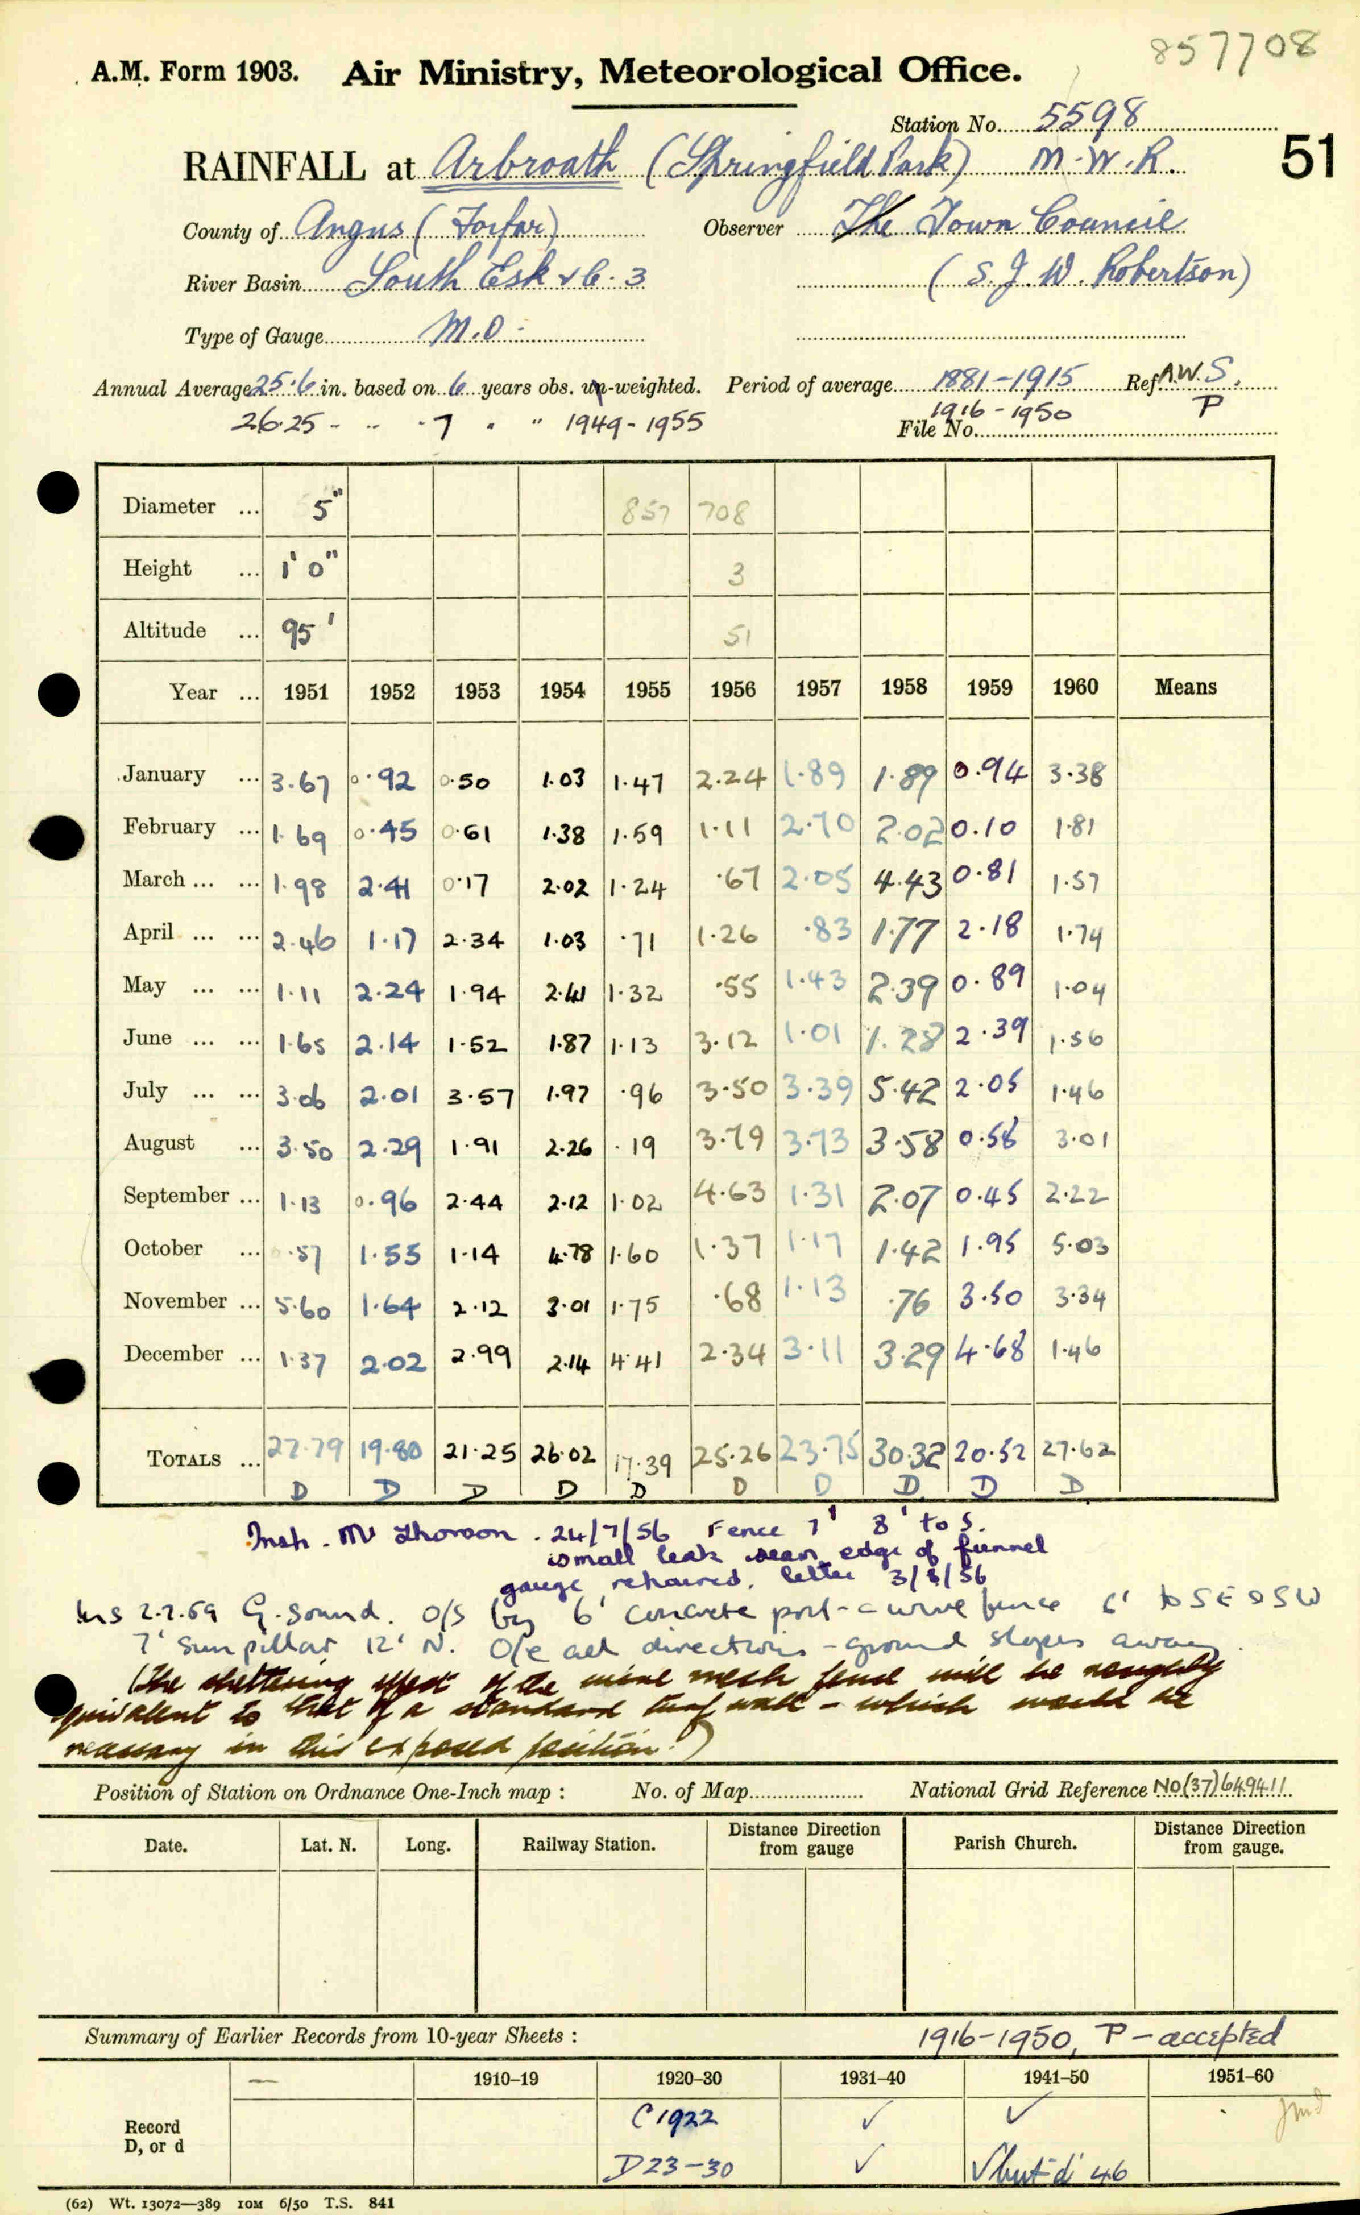 857708
A.M. Form 1903. Air Ministry, Meteorological Office.
Station No. 5598
RAINFALL at Arbroath (Springfield Park) M.W.R. 51
County of Angus (Forfar) Observer The Town Council
River Basin South Esk & C. 3 (S.J.W. Robertson)
Type of Gauge M.O.
Annual Average 25.6 in. based on 6 years obs. un-weighted. Period of average 1881-1915 Ref A.W.S.
26.25 - " 7 " " 1949-1955 1916-1950 P
File No.
Diameter ... 5" 857 708
Height ... 1' 0" 3
Altitude ... 95' 51
Year ... 1951 1952 1953 1954 1955 1956 1957 1958 1959 1960 Means
January ... 3.67 0.92 0.50 1.03 1.47 2.24 1.89 1.89 0.94 3.38
February ... 1.69 0.45 0.61 1.38 1.59 1.11 2.70 2.02 0.10 1.81
March ... ... 1.98 2.41 0.17 2.02 1.24 .67 2.05 4.43 0.81 1.57
April ... ... 2.46 1.17 2.34 1.03 .71 1.26 .83 1.77 2.18 1.74
May ... ... 1.11 2.24 1.94 2.41 1.32 .55 1.43 2.39 0.89 1.04
June ... ... 1.65 2.14 1.52 1.87 1.13 3.12 1.01 1.28 2.39 1.56
July ... ... 3.06 2.01 3.57 1.97 .96 3.50 3.39 5.42 2.05 1.46
August ... 3.50 2.29 1.91 2.26 .19 3.79 3.73 3.58 0.58 3.01
September ... 1.13 0.96 2.44 2.12 1.02 4.63 1.31 2.07 0.45 2.22
October ... .57 1.55 1.14 4.78 1.60 1.37 1.17 1.42 1.95 5.03
November ... 5.60 1.64 2.12 3.01 1.75 .68 1.13 .76 3.50 3.34
December ... 1.37 2.02 2.99 2.14 4.41 2.34 3.11 3.29 4.68 1.46
TOTALS ... 27.79 19.80 21.25 26.02 17.39 25.26 23.75 30.32 20.52 27.62
D D D D D D D D D D
24/7/56 Fence 7' 8' to S.
small leak near edge of funnel
gauge repaired. letter 3/8/56
Ins 2.7.59 G. sound. O/S by 6' concrete post - wire fence 6' to SE SW
7' Sun pillar 12' N. O/e all directions - ground slopes away.
(The sheltering effect of the wire mesh fence will be roughly
equivalent to that of a standard turf wall - which would be
necessary in this exposed position.)
Position of Station on Ordnance One-Inch map : No. of Map National Grid Reference NO(37)649411
Date. Lat. N. Long. Railway Station. Distance from gauge Direction Parish Church. Distance from gauge. Direction
Summary of Earlier Records from 10-year Sheets : 1916-1950, P - accepted
— 1910–19 1920–30 1931–40 1941–50 1951–60
Record C 1922 ✓ ✓
D, or d D 23-30 ✓ ✓ but d 46
(62) Wt. 13072—389 10M 6/50 T.S. 841